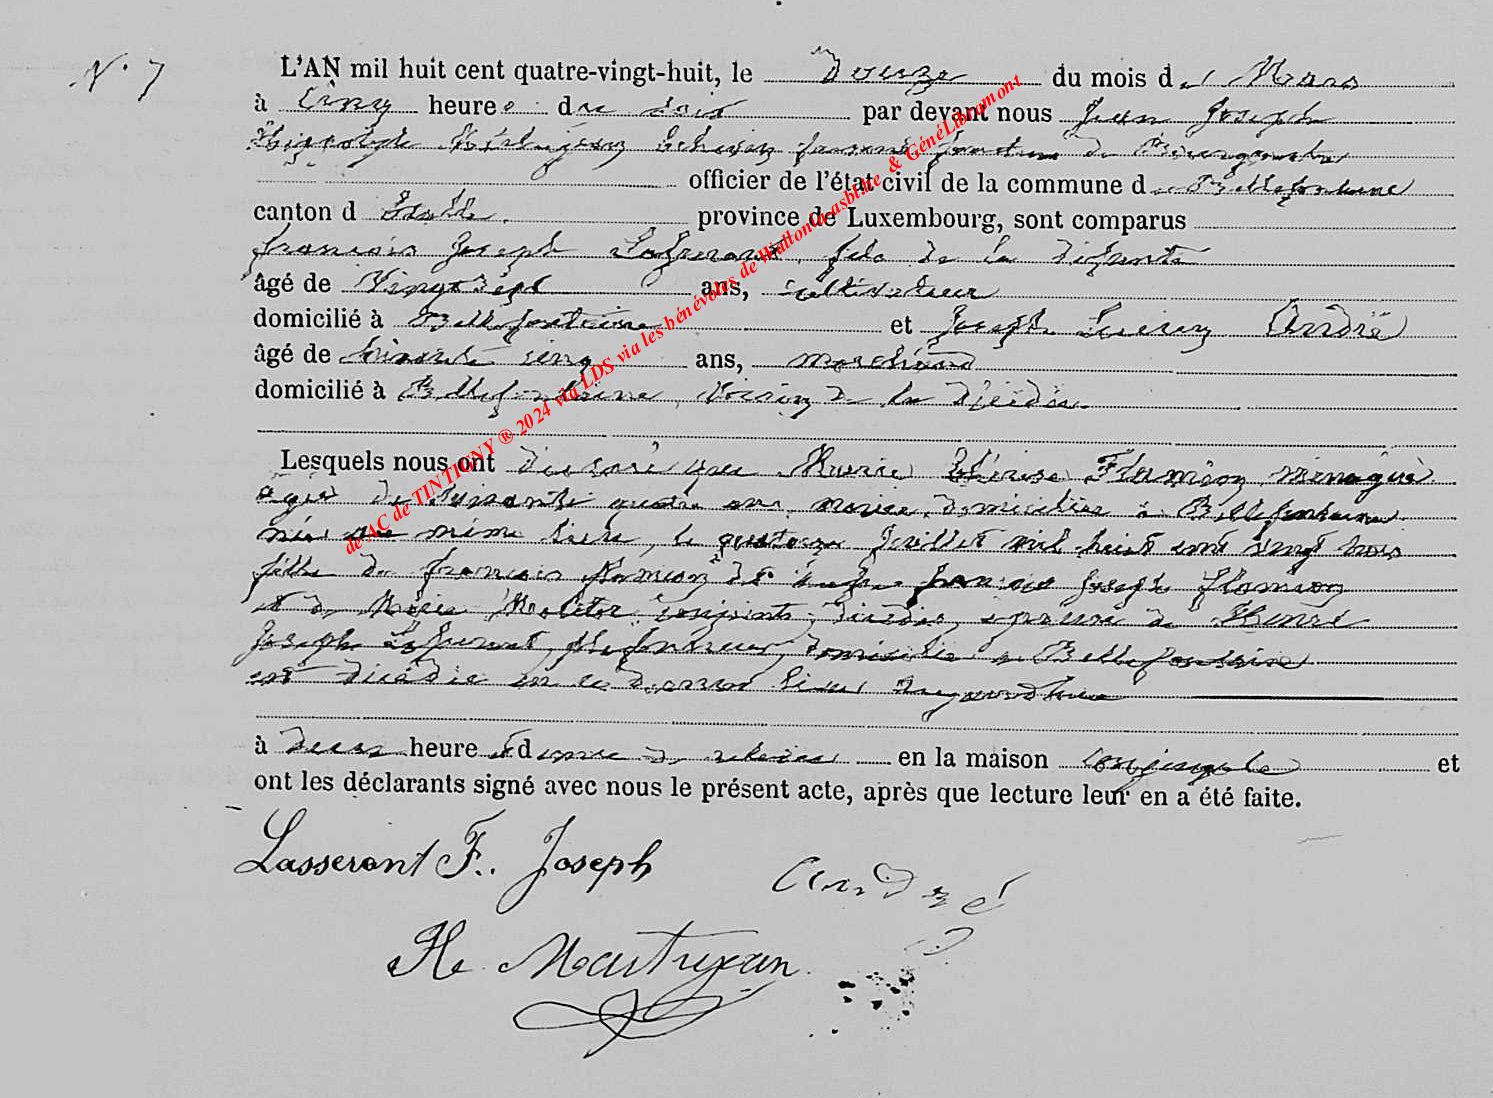 N° 7
L'AN mil huit cent quatre-vingt-huit, le Douze du mois de Mars
à Cinq heures du soir par devant nous Jean Joseph
échevin faisant fonctions de Bourgmestre
officier de l'état civil de la commune de Bellefontaine
canton d'Etalle province de Luxembourg, sont comparus
francois Joseph Lasserant, fils de la défunte
âgé de Vingt sept ans, cultivateur
domicilié à Bellefontaine et Joseph André
âgé de cinq ans, marchand
domicilié à Bellefontaine, Voisin de la décédée
Lesquels nous ont déclaré que Marie Thérèse Flamion ménagère
agée de soixante quatre ans, mariée, domiciliée à Bellefontaine
née au même lieu, le quatorze Juillet mil huit cent vingt trois
fille de francois Joseph Flamion
et de Marie Molitor conjoints, décédés, épouse de Henri
Joseph Lasserant, domicilié à Bellefontaine
est décédée en ce dernier lieu aujourd'hui
à deux heures d de relevée en la maison conjugale et
ont les déclarants signé avec nous le présent acte, après que lecture leur en a été faite.
Lasserant F. Joseph André
H. Mautrejean
de AC de TINTIGNY ® 2024 via LDS via les bénévoles de Wallonia asbl.be & GénéLibramont